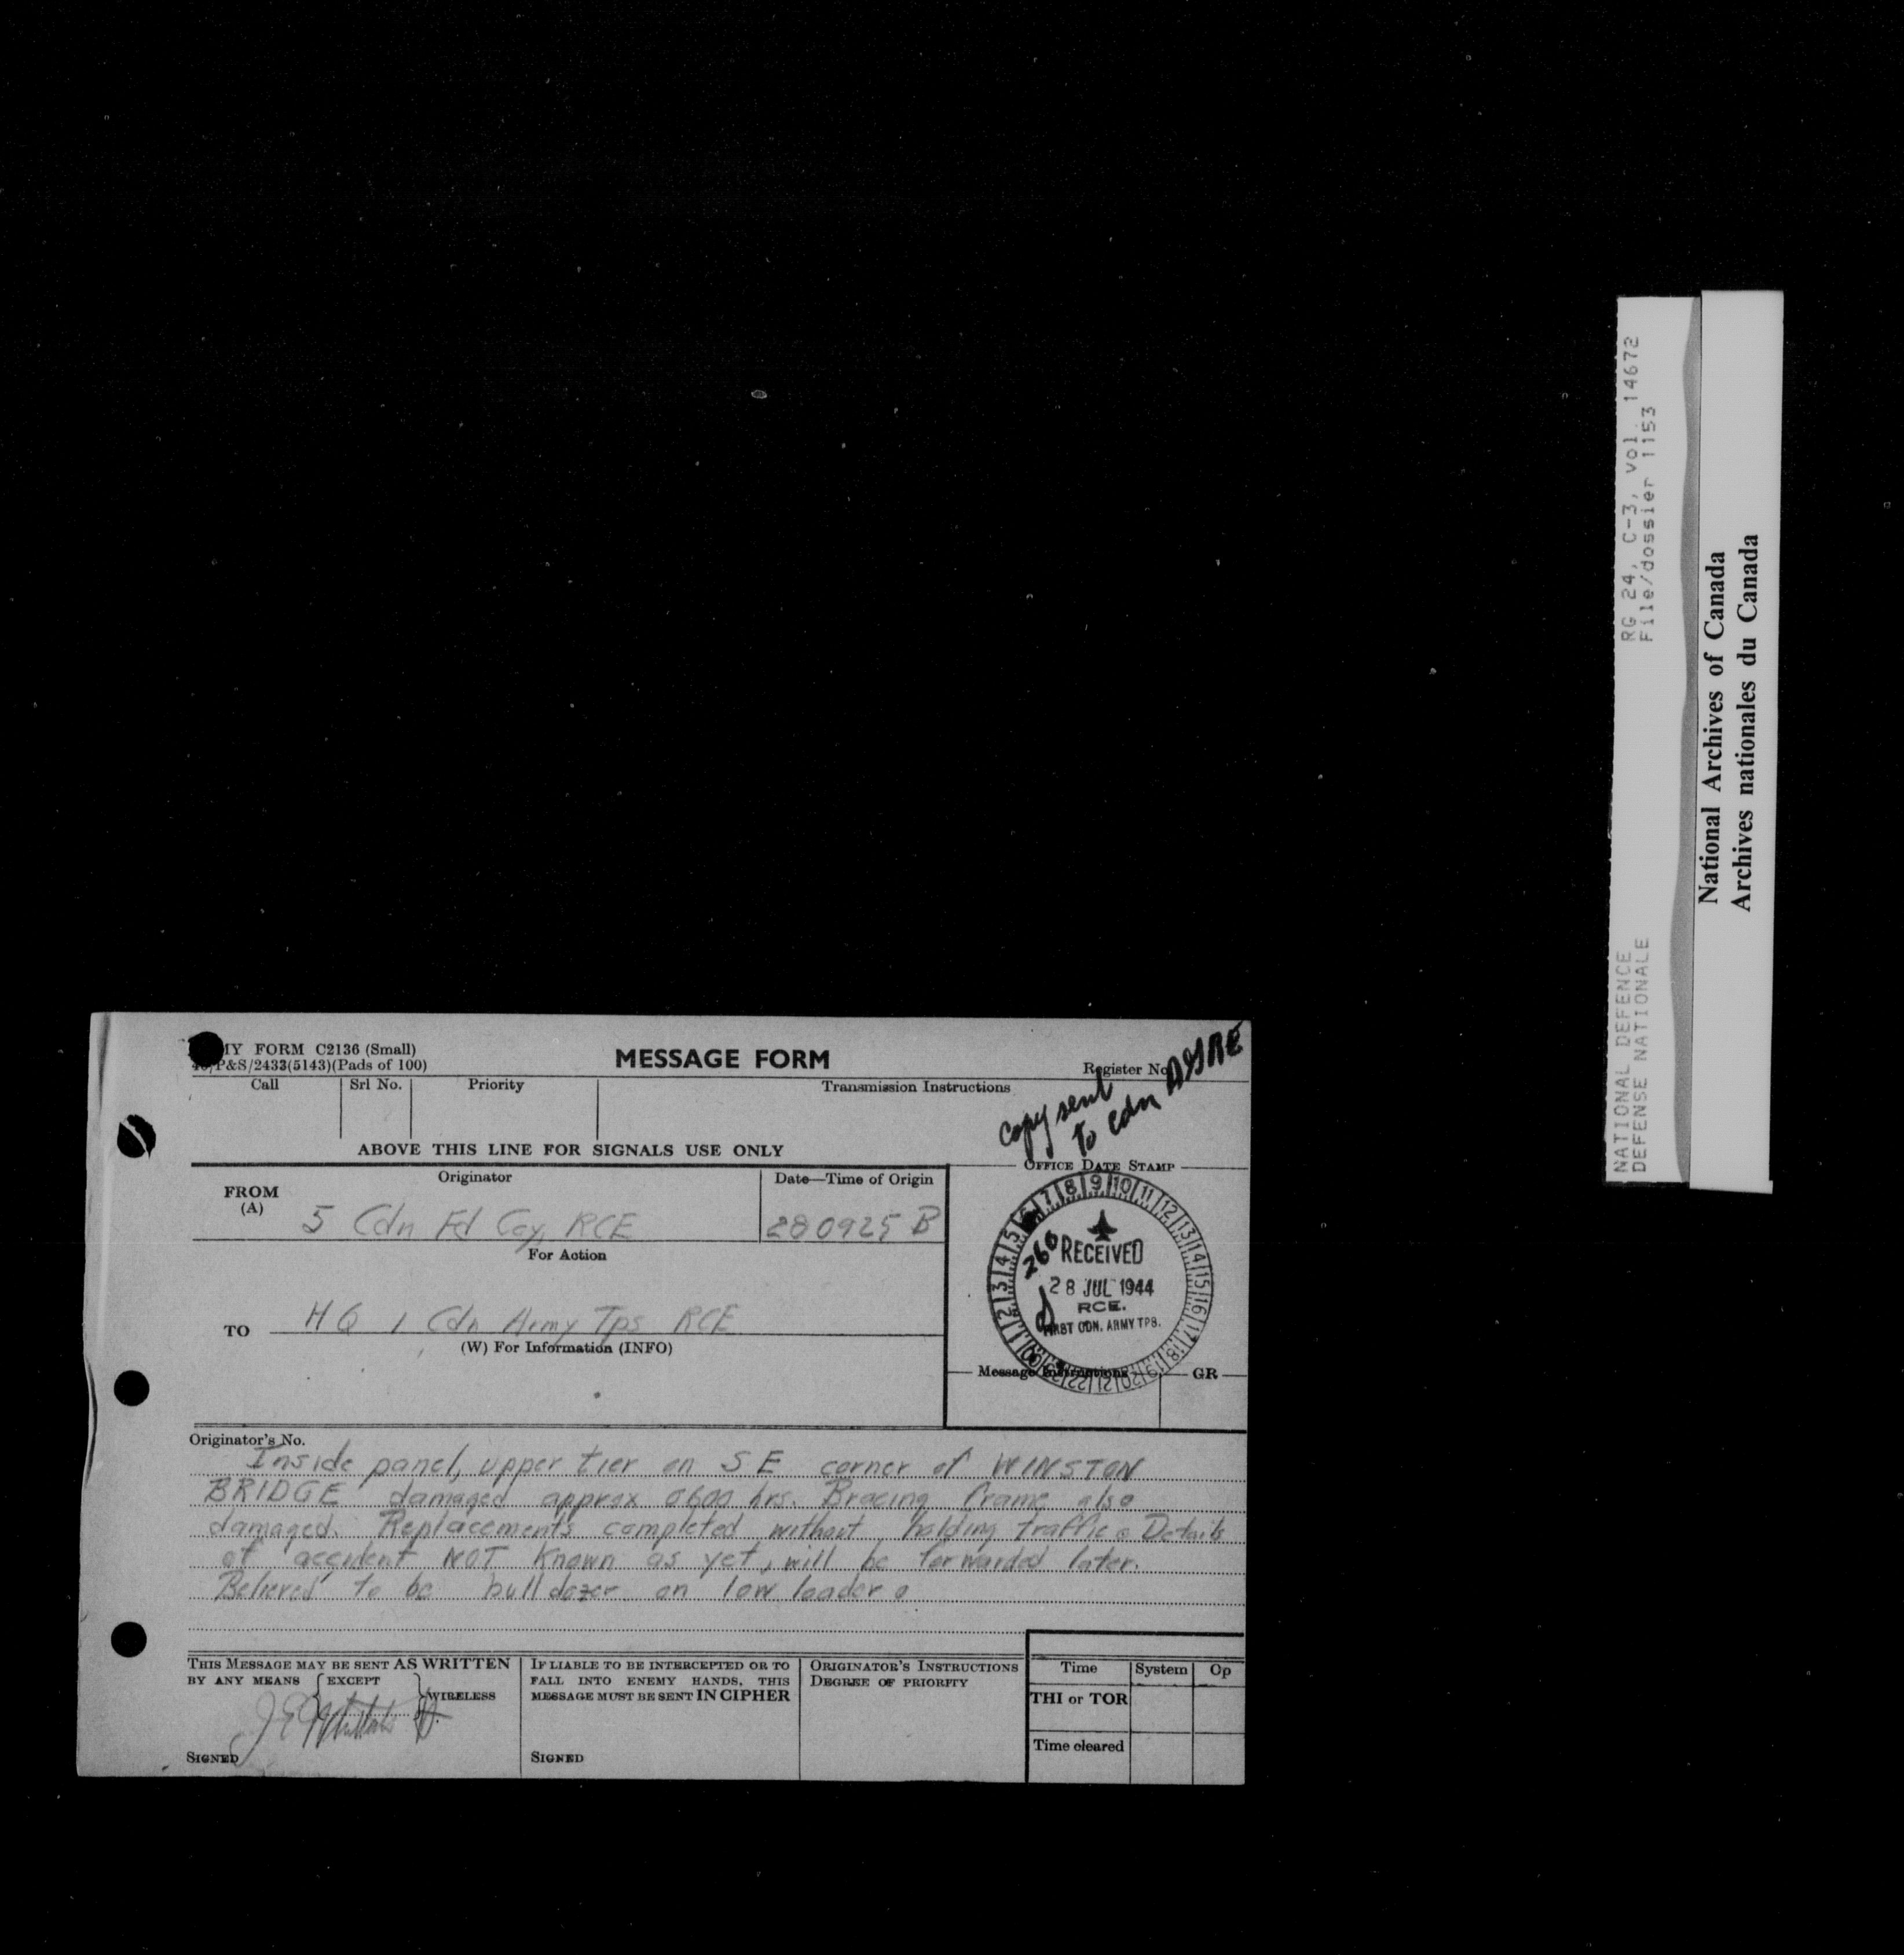 MY FORM C2136 (Small)
P&S/2433(5143)(Pads of 100)
MESSAGE FORM
Register No.
Call Srl No. Priority Transmission Instructions
Copy sent
To Cdn
ABOVE THIS LINE FOR SIGNALS USE ONLY
OFFICE DATE STAMP
FROM
(A)
Originator
Date—Time of Origin
5 Cdn Fd Coy, RCE
280925 B
For Action
TO
H Q 1 Cdn Army Tps RCE
(W) For Information (INFO)
1 2 3 4 5 6 7 8 9 10 11 12 13 14 15 16 17 18 19 20 21 22
RECEIVED
28 JUL 1944
RCE.
FIRST CDN. ARMY TPS.
Message Instructions GR
Originator's No.
Inside panel, upper tier on S E corner of WINSTON
BRIDGE damaged approx 0600 hrs. Bracing frame also
damaged. Replacements completed without holding traffic. Details
of accident NOT known as yet, will be forwarded later.
Believed to be bulldozer on low loader.
THIS MESSAGE MAY BE SENT AS WRITTEN
BY ANY MEANS EXCEPT
WIRELESS
SIGNED
IF LIABLE TO BE INTERCEPTED OR TO
FALL INTO ENEMY HANDS, THIS
MESSAGE MUST BE SENT IN CIPHER
SIGNED
ORIGINATOR'S INSTRUCTIONS
DEGREE OF PRIORITY
Time System Op
THI or TOR
Time cleared
NATIONAL DEFENCE RG 24, C-3, vol. 14672
DEFENSE NATIONALE File/dossier 1153
National Archives of Canada
Archives nationales du Canada